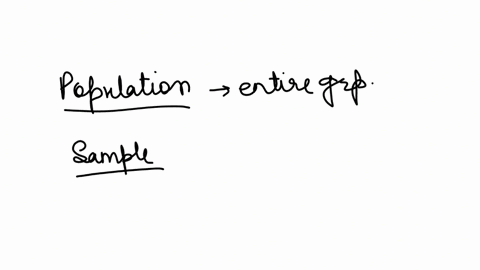 Population → entire grp.
Sample